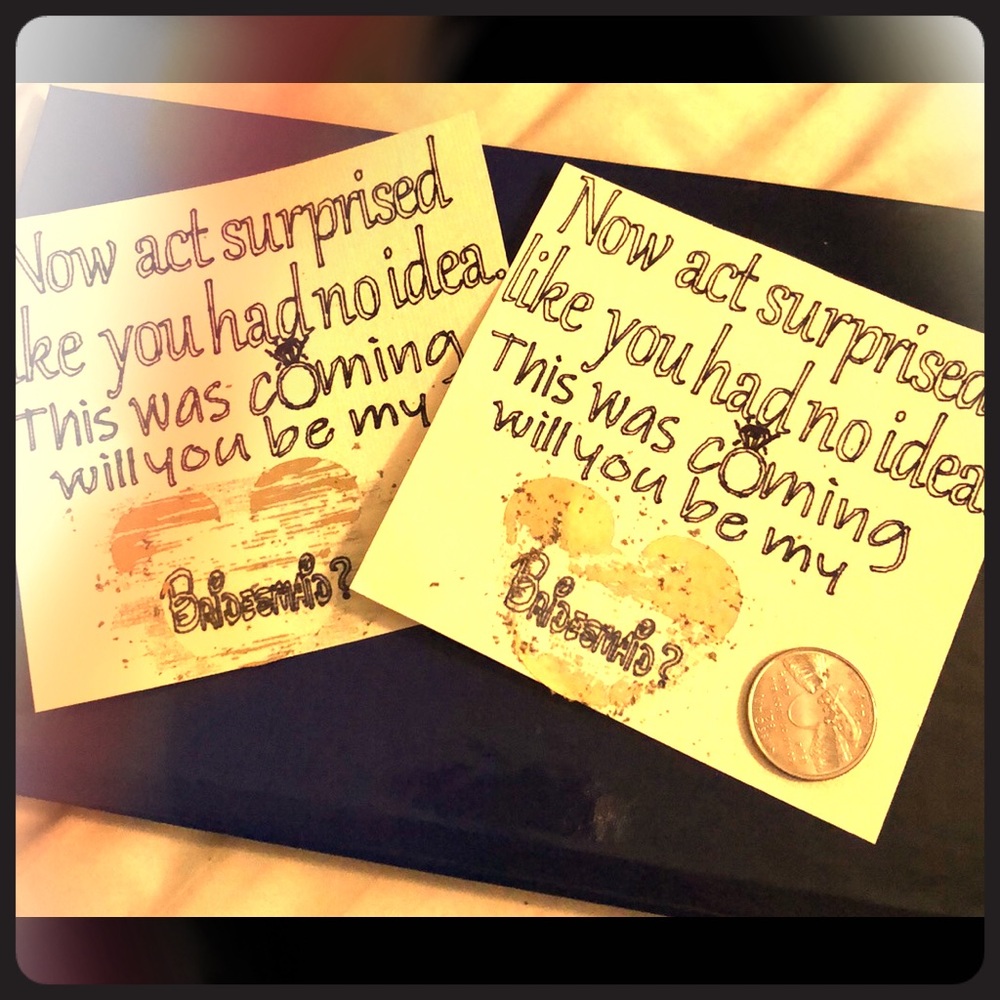 Now act surprised
like you had no idea.
This was coming
will you be my
BRiDESMAiD?
Now act surprised
like you had no idea.
This was coming
will you be my
BRiDESMAiD?